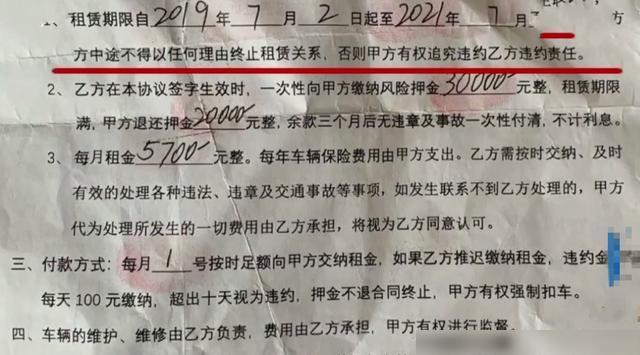 1、租赁期限自2019年7月2日起至2021年7月
方
方中途不得以任何理由终止租赁关系，否则甲方有权追究违约乙方违约责任。
2、乙方在本协议签字生效时，一次性向甲方缴纳风险押金30000元整，租赁期限
满，甲方退还押金20000元整，余款三个月后无违章及事故一次性付清，不计利息。
3、每月租金5700元整。每年车辆保险费用由甲方支出。乙方需按时交纳、及时
有效的处理各种违法、违章及交通事故等事项，如发生联系不到乙方处理的，甲方
代为处理所发生的一切费用由乙方承担，将视为乙方同意认可。
三、付款方式：每月1号按时足额向甲方交纳租金，如果乙方推迟缴纳租金，违约金
每天100元缴纳，超出十天视为违约，押金不退合同终止，甲方有权强制扣车。
四、车辆的维护、维修由乙方负责，费用由乙方承担，甲方有权进行监督。